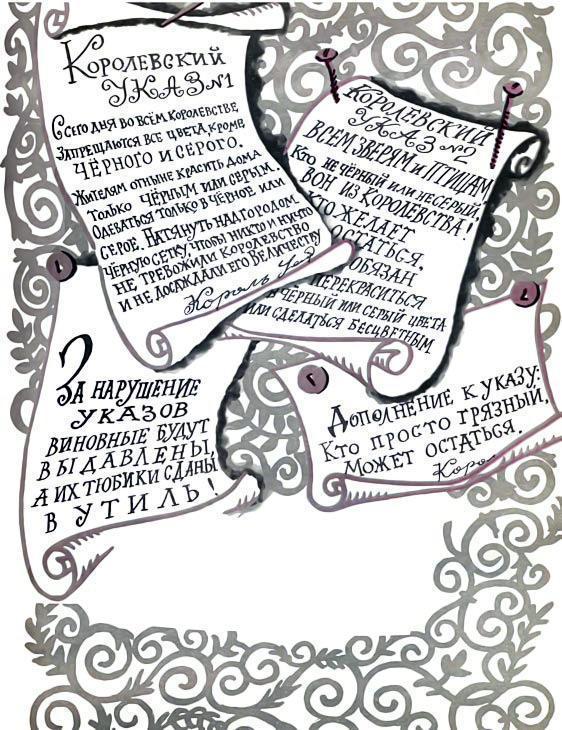 Королевский
Указ №1
С сего дня во всём королевстве
запрещаются все цвета, кроме
чёрного и серого.
Жителям отныне красить дома
только чёрным или серым.
Одеваться только в чёрное или
серое. Натянуть над городом
чёрную сетку, чтобы никто и ничто
не тревожили королевство
и не досаждали его величеству
Король
Королевский
Указ №2
Всем зверям и птицам
Кто не чёрный или не серый,
вон из королевства!
то желает
остаться,
обязан
перекраситься
в чёрный или серый цвета
или сделаться бесцветным
За нарушение
указов
виновные будут
выдавлены,
а их тюбики сданы
в утиль!
Дополнение к указу:
Кто просто грязный,
может остаться.
Коро